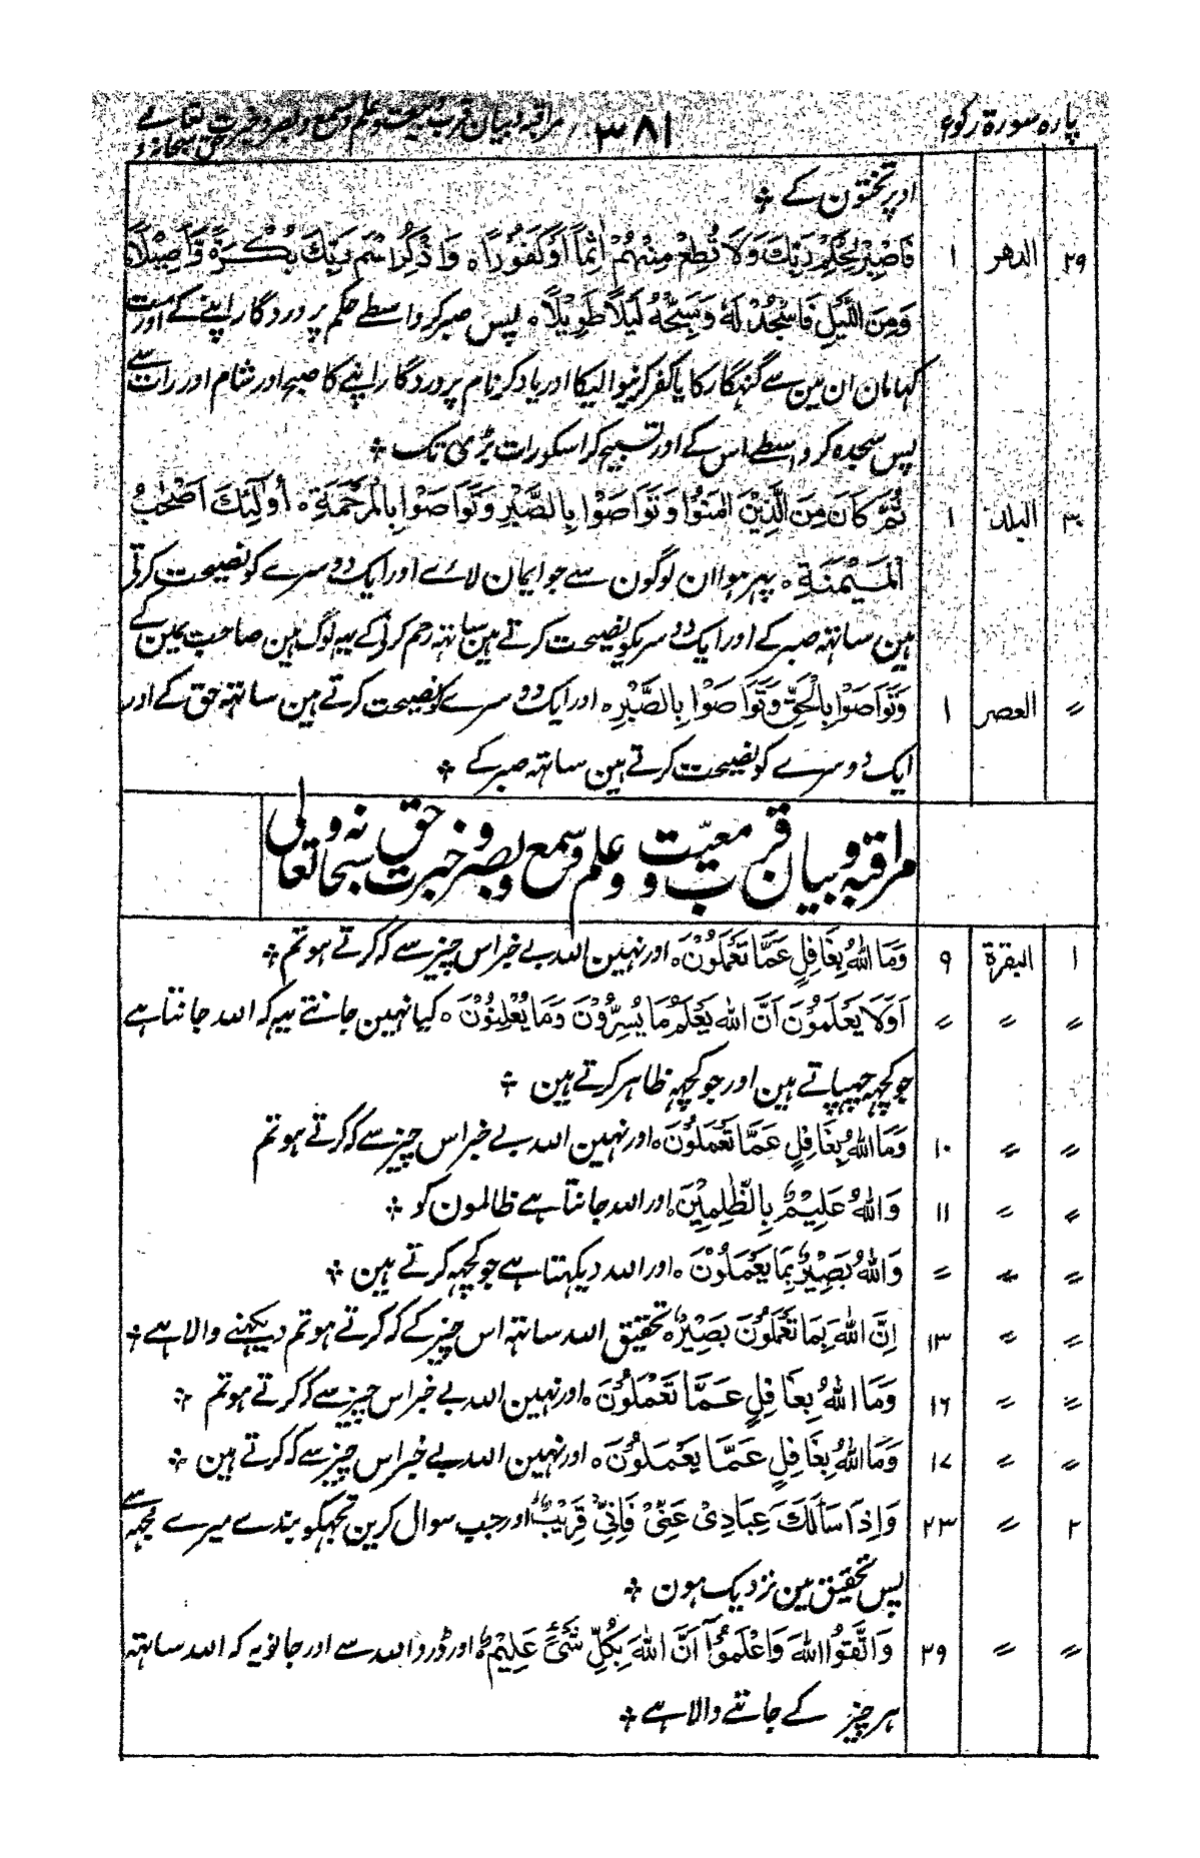 پاره سورة رکوع ٣٨١ مراقبہ و بیان قرب و معیت و علم و سمع و بصر و خبرت حق سبحانہ و تعالے
اوپر تختون کے ❊
٢٩ الدهر ١ فَاصْبِرْ لِحُكْمِ رَبِّكَ وَلَا تُطِعْ مِنْهُمْ اٰثِمًا اَوْ كَفُوْرًا ○ وَاذْكُرِ اسْمَ رَبِّكَ بُكْرَةً وَّاَصِيْلًا
وَمِنَ الَّيْلِ فَاسْجُدْ لَهٗ وَسَبِّحْهُ لَيْلًا طَوِيْلًا ○ پس صبر کر واسطے حکم پروردگار اپنے کے اور مت
کہا مان ان مین سے گنہگار کا یا کفر کرنیوالیکا اور یاد کر نام پروردگار اپنے کا صبح اور شام اور رات سے
پس سجدہ کر واسطے اس کے اور تسبیح کر اسکو رات بڑی تک ❊
٣٠ البلد ١ ثُمَّ كَانَ مِنَ الَّذِيْنَ اٰمَنُوْا وَتَوَاصَوْا بِالصَّبْرِ وَتَوَاصَوْا بِالْمَرْحَمَةِ ○ اُولٰٓئِكَ اَصْحٰبُ
الْمَيْمَنَةِ ○ پهر هوا ان لوگون سے جو ایمان لائے اور ایک دوسرے کو نصیحت کرتی
ہین ساتہہ صبر کے اور ایک دوسریکو نصیحت کرتے ہین ساتہہ رحم کرنیکے یہہ لوگ ہین صاحب یمین کے
〃 العصر ١ وَتَوَاصَوْا بِالْحَقِّ وَتَوَاصَوْا بِالصَّبْرِ ○ اور ایک دوسرے کو نصیحت کرتے ہین ساتہہ حق کے اور
ایک دوسرے کو نصیحت کرتے ہین ساتہہ صبر کے ❊
مراقبہ و بیان قرب و معیّت و علم و سمع و بصر و خبرت حق سبحانہ و تعالی
١ البقرة ٩ وَمَا اللّٰهُ بِغَافِلٍ عَمَّا تَعْمَلُوْنَ ○ اور نہین اللہ بے خبر اس چیز سے کہ کرتے ہو تم ❊
〃 〃 〃 اَوَلَا يَعْلَمُوْنَ اَنَّ اللّٰهَ يَعْلَمُ مَا يُسِرُّوْنَ وَمَا يُعْلِنُوْنَ ○ کیا نہین جانتے یہہ کہ اللہ جانتا ہے
جو کچہہ چہپاتے ہین اور جو کچہہ ظاہر کرتے ہین ❊
〃 〃 ١٠ وَمَا اللّٰهُ بِغَافِلٍ عَمَّا تَعْمَلُوْنَ ○ اور نہین اللہ بے خبر اس چیز سے کہ کرتے ہو تم
〃 〃 ١١ وَاللّٰهُ عَلِيْمٌۢ بِالظّٰلِمِيْنَ ○ اور اللہ جانتا ہے ظالمون کو ❊
〃 〃 〃 وَاللّٰهُ بَصِيْرٌۢ بِمَا يَعْمَلُوْنَ ○ اور اللہ دیکہتا ہے جو کچہہ کرتے ہین ❊
〃 〃 ١٣ اِنَّ اللّٰهَ بِمَا تَعْمَلُوْنَ بَصِيْرٌ ○ تحقیق اللہ ساتہہ اس چیز کے کہ کرتے ہو تم دیکہنے والا ہے ❊
〃 〃 ١٦ وَمَا اللّٰهُ بِغَافِلٍ عَمَّا تَعْمَلُوْنَ ○ اور نہین اللہ بے خبر اس چیز سے کہ کرتے ہو تم ❊
〃 〃 ١٧ وَمَا اللّٰهُ بِغَافِلٍ عَمَّا يَعْمَلُوْنَ ○ اور نہین اللہ بے خبر اس چیز سے کہ کرتے ہین ❊
٢ 〃 ٢٣ وَاِذَا سَاَلَكَ عِبَادِیْ عَنِّیْ فَاِنِّیْ قَرِيْبٌ ؕ اور جب سوال کرین تجہکو بندے میرے مجہہ سے
پس تحقیق مین نزدیک ہون ❊
〃 〃 ٢٩ وَاتَّقُوا اللّٰهَ وَاعْلَمُوْٓا اَنَّ اللّٰهَ بِكُلِّ شَیْءٍ عَلِيْمٌ ؕ اور ڈرو اللہ سے اور جانو یہ کہ اللہ ساتہہ
ہر چیز کے جاننے والا ہے ❊